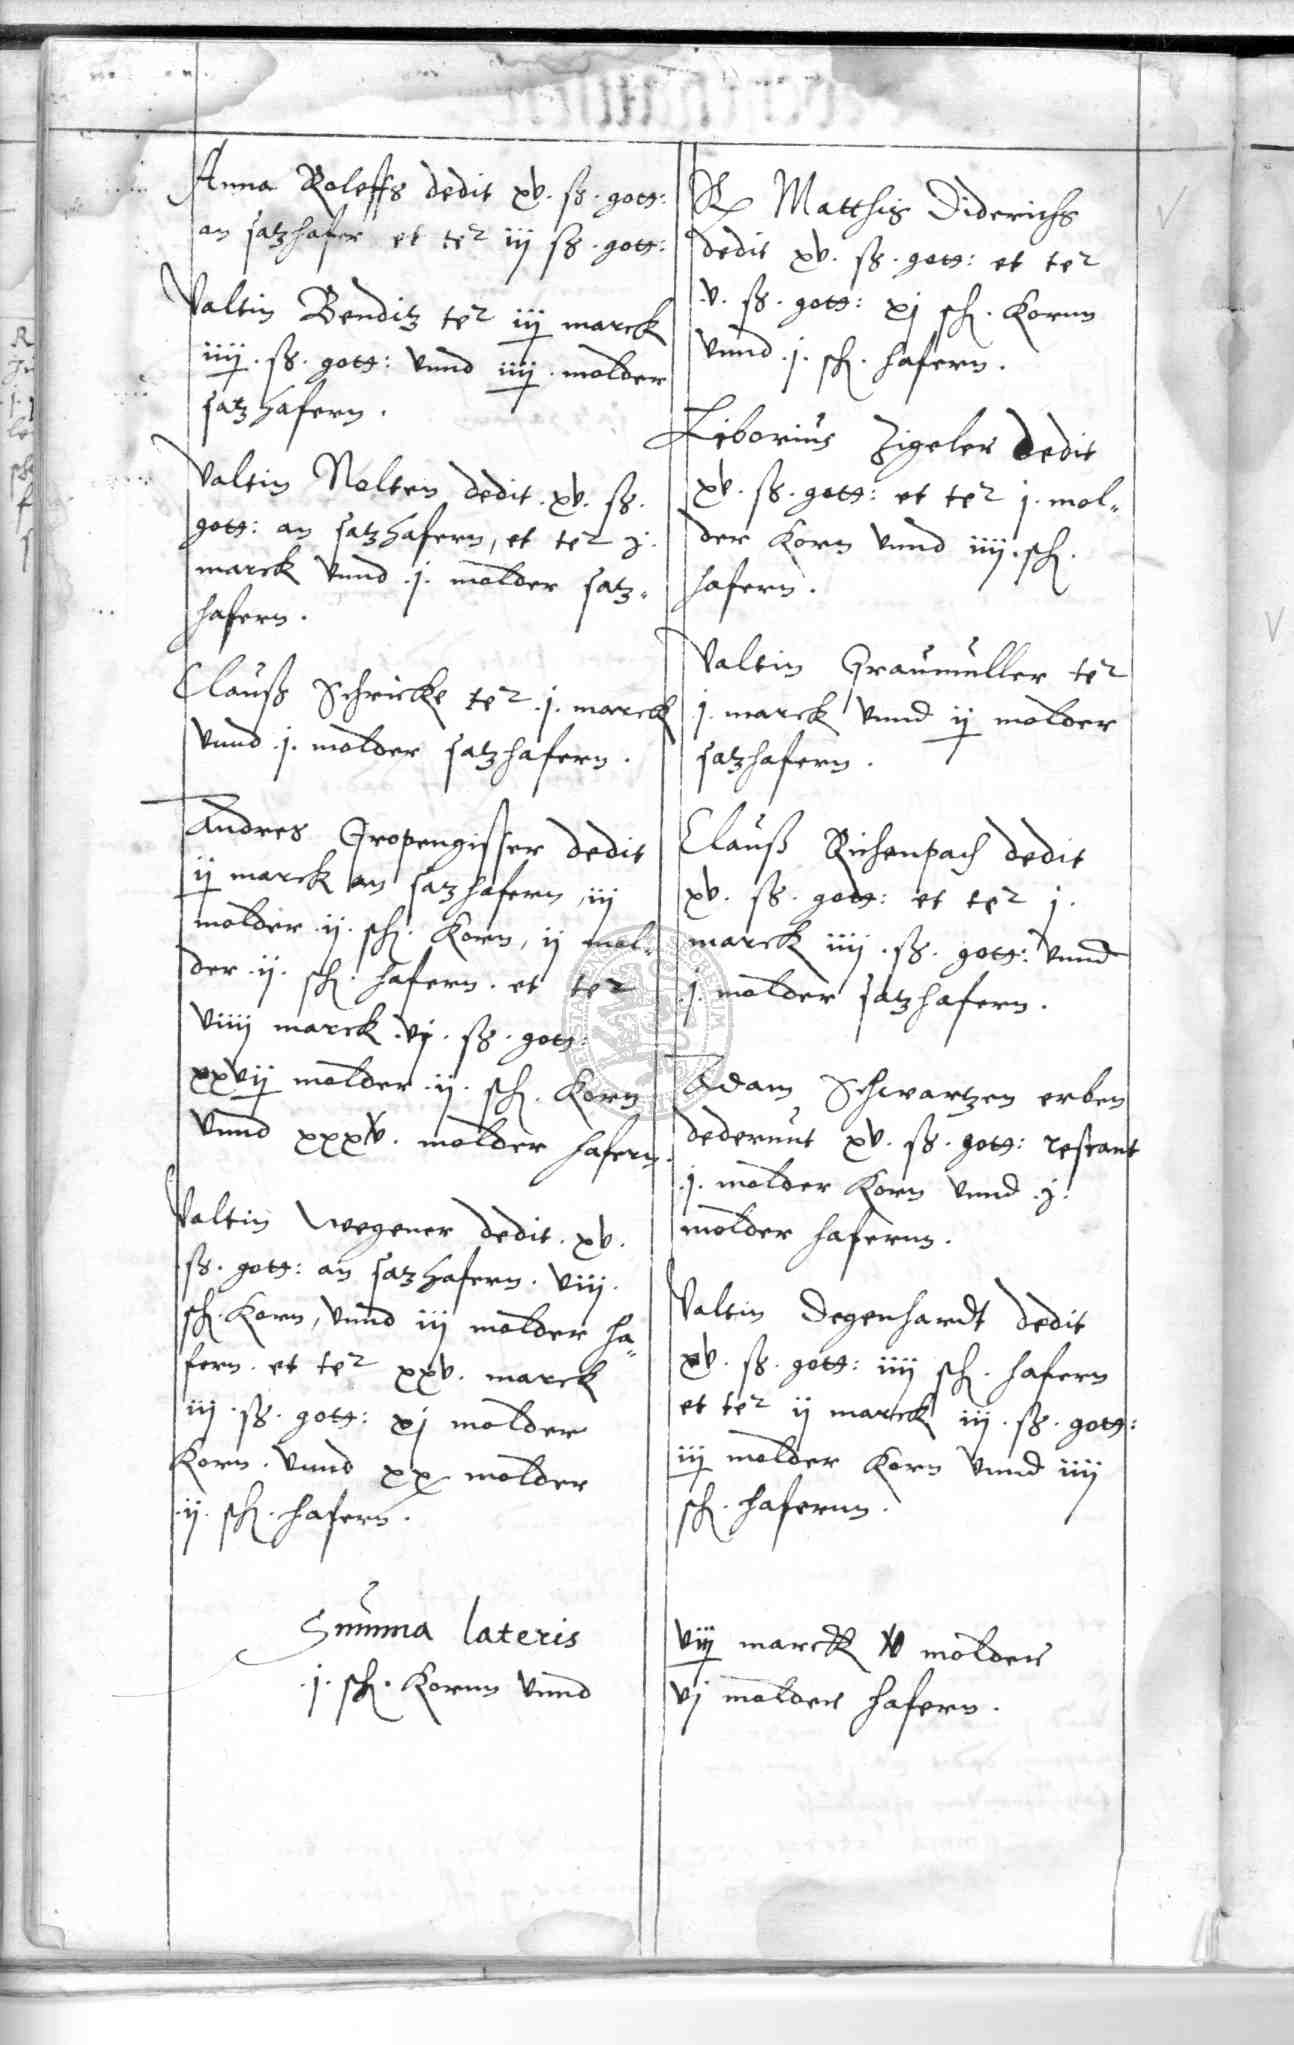 Anna Roleffs dedit xv. ß. gotß:
an satzhafer et ter iij ß. gotß:
Valtin Benditz ter iij marck
iiij. ß. gotß: vnnd iiij. molder
satzhafern.
Valtin Nolten dedit. xv. ß.
gotß: an satzhafern, et ter j.
marck vnnd .j. molder satz„
hafern.
Clauß Schricke ter .j. marck
vnnd .j. molder satzhafern.
Andres Gropengisser dedit
ij marck an satzhafern, iij
molder .ij. sch. Korn, ij mol„
der .ij. sch. hafern. et ter
viiij marck .vj. ß. gotß:
xxvij molder .ij. sch. Korn
vnnd xxxv. molder hafern.
Valtin Wegener dedit. xv.
ß. gotß: an satzhafern. viij.
sch. Korn, vnnd iij molder ha„
fern. et ter xxv. marck
iij. ß. gotß: xj molder
Korn. vnnd xx molder
.ij. sch. hafern.
Summa lateris
.j. sch. Kornn vnnd
R Matthis Diderichs
dedit xv. ß. gotß: et ter
v. ß. gotß: xj sch. Kornn
vnnd .j. sch. hafern.
Liborius Zigeler dedit
xv. ß. gotß: et ter j. mol„
der Korn vnnd iiij. sch.
hafern.
Valtin Graumuller ter
j. marck vnnd ij molder
satzhafern.
Clauß Richenpach dedit
xv. ß. gotß: et ter j.
marck iiij. ß. gotß: vnnd
.j. molder satzhafern.
Adam Schwartzen erben
dederunt xv. ß. gotß: restant
.j. molder Korn vnnd .j.
molder hafernn.
Valtin Degenhardt dedit
xv. ß. gotß: iiij sch. hafern
et ter ij marck iij. ß. gotß:
iij molder Korn vnnd iiij
sch. hafernn.
viij marck molder
vj molder hafern.